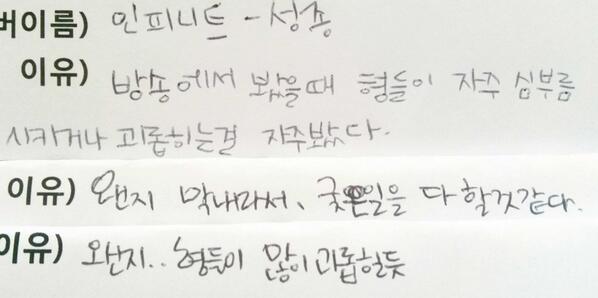 버이름) 인피니트 - 성종
이유) 방송에서 봤을때 형들이 자주 심부름
시키거나 괴롭히는걸 자주봤다.
이유) 왠지 막내라서, 궂은일을 다 할것같다.
이유) 왠지.. 형들이 많이 괴롭힐듯